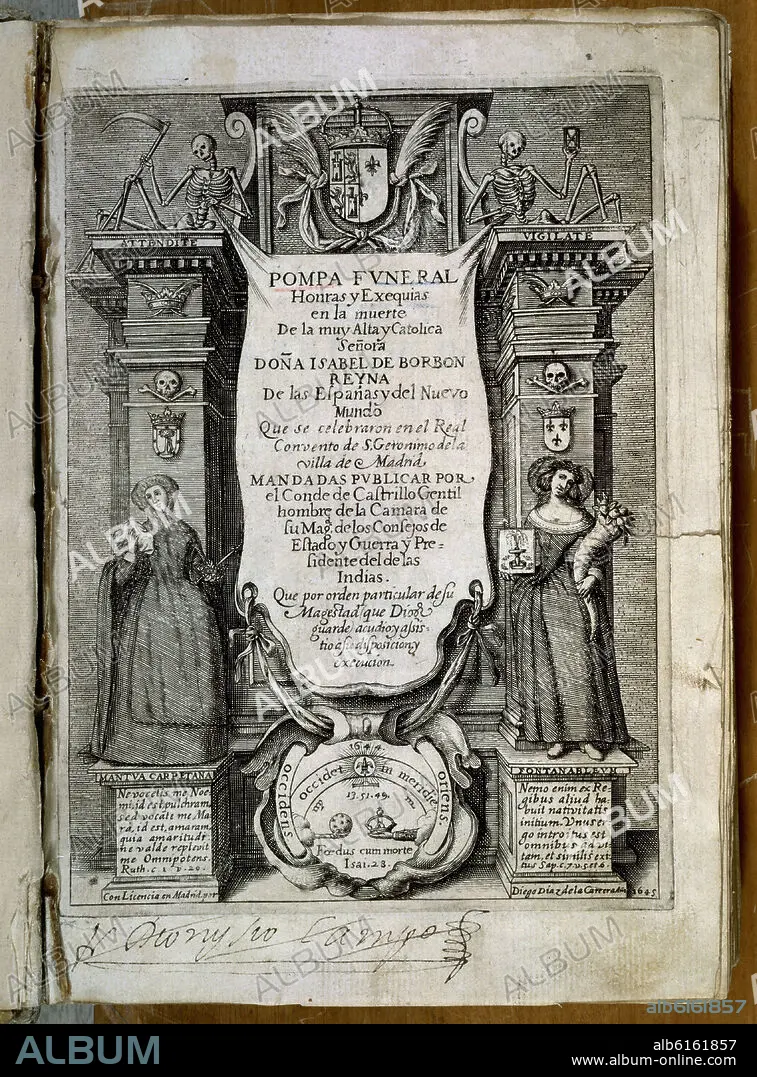 ATTENDITE
VIGILATE
POMPA FVNERAL
Honras y Exequias
en la muerte
De la muy Alta y Catolica
Señora
DOÑA ISABEL DE BORBON
REYNA
De las Españas y del Nuevo
Mundo
Que se celebraron en el Real
Convento de S. Geronimo de la
villa de Madrid
MANDADAS PVBLICAR POR
el Conde de Castrillo Gentil
hombre de la Camara de
su Mag. de los Consejos de
Estado y Guerra y Pre=
sidente del de las
Indias.
Que por orden particular de su
Magestad que Dios
guarde acudio y asis-
tio a su disposicion y
execucion.
MANTVA CARPETANA
Ne vocetis me Noe
mi, id est, pulchram,
sed vocate me Ma
ra, id est, amaram,
quia amaritudi
ne valde replevit
me Omnipotens.
Ruth. c. 1. v. 20.
Con Licencia en Madrid por
1644
occidens
occidet in meridie
oriens
13. 51. 49.
Fœdus cum morte
Isai. 28.
FONTANABLEVM
Nemo enim ex Re
gibus aliud ha
buit nativitatis
initium. Vnus er
go introitus est
omnibus ad vi
tam, et similis exi
tus Sap. c. 7. v. 5 et 6.
Diego Diaz de la Carrera Año 1645
Dionysio Campo
ALBUM
alb6161857
ALBUM
alb6161857
www.album-online.com